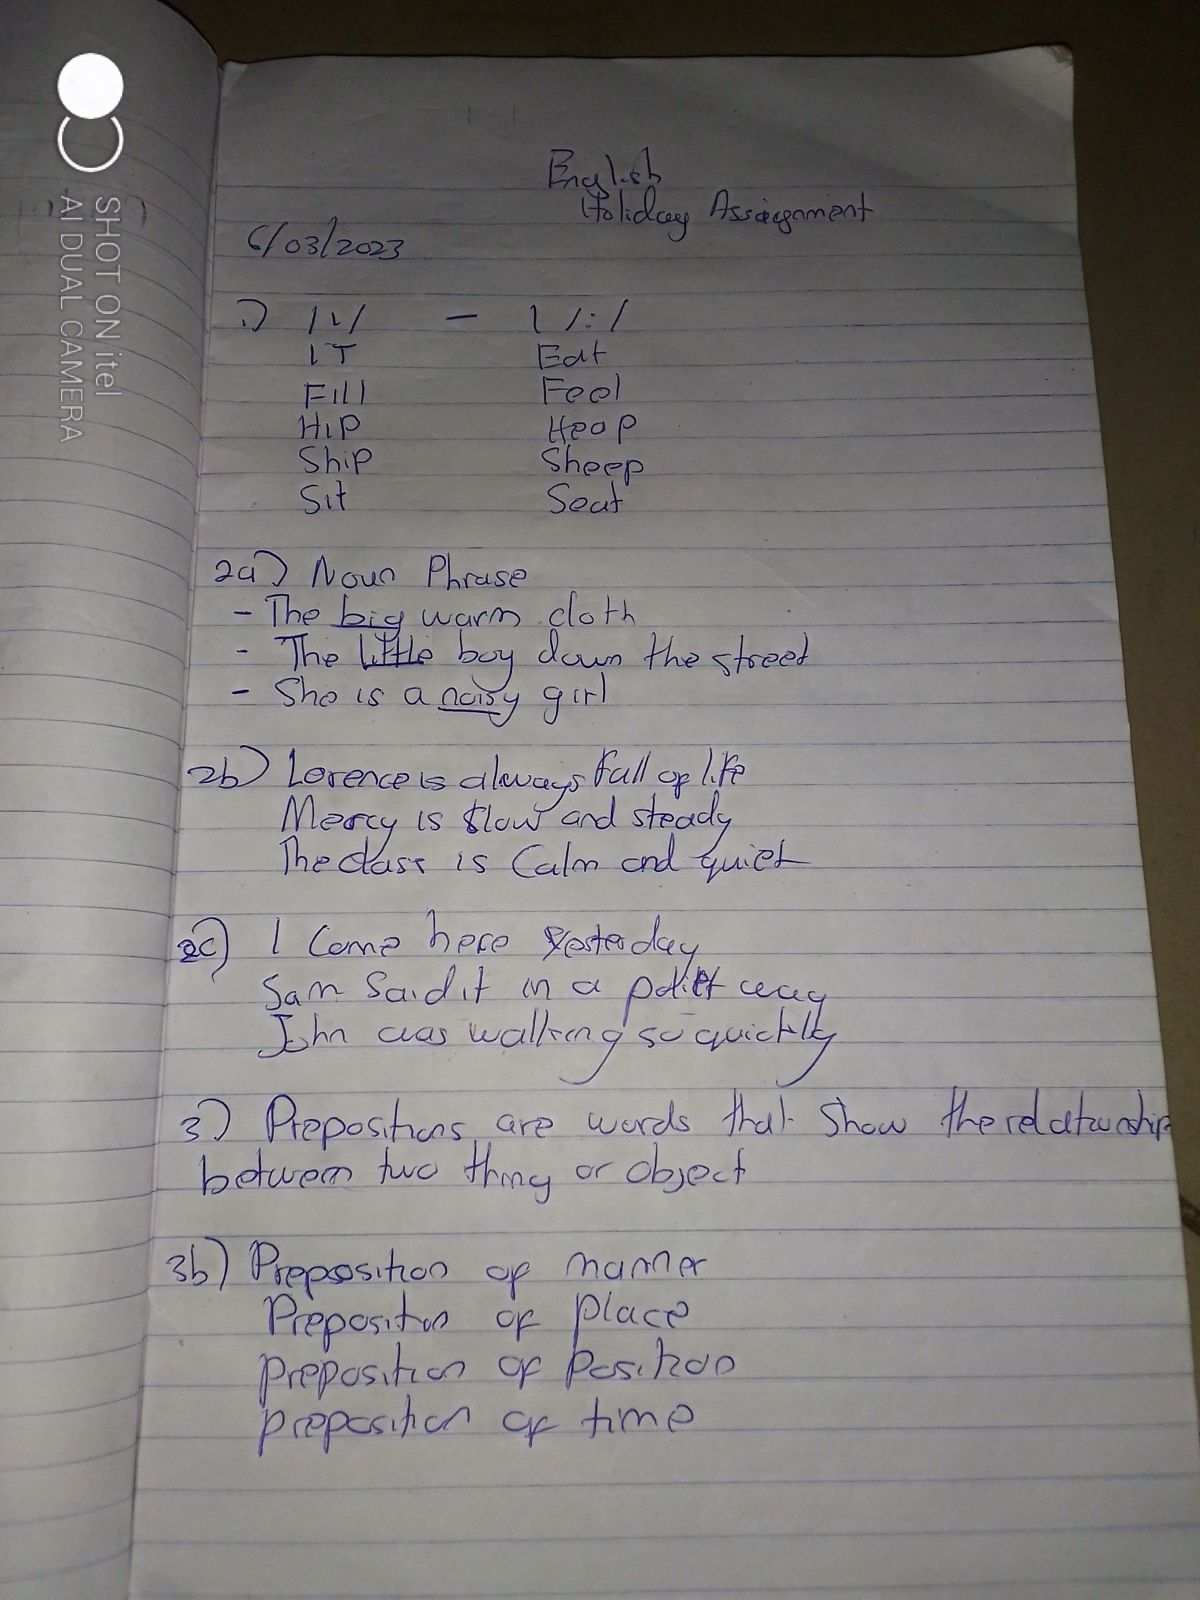 English
Holiday Assaignment
6/03/2023
1) /ɪ/ - /i:/
IT Eat
Fill Feel
Hip Heap
Ship Sheep
Sit Seat
2a) Noun Phrase
- The big warm cloth
- The little boy down the street
- She is a noisy girl
2b) Lorence is always full of life
Mercy is slow and steady
The class is Calm and quiet
2c) I Come here yesterday
Sam Said it in a way
John was walking so quickly
3) Prepositions are words that show the relationship
between two thing or object
3b) Preposition of manner
Preposition of place
preposition of position
preposition of time
SHOT ON itel
AI DUAL CAMERA